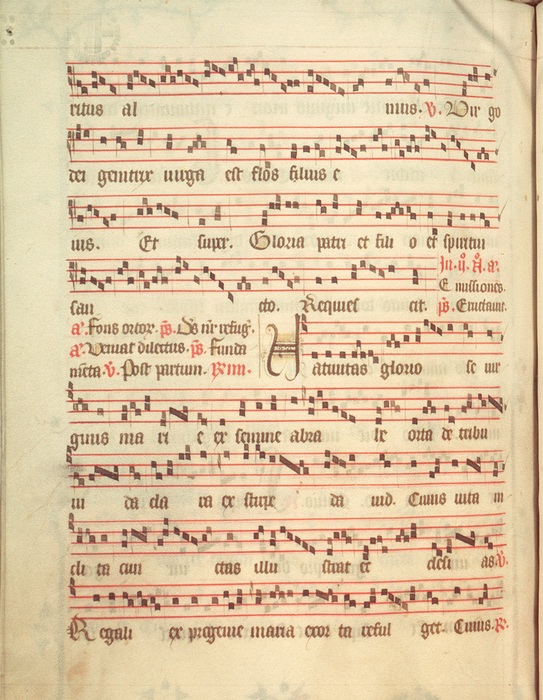 ritus al mus. v. Vir go
dei genitrix uirga est flos filius e
ius. Et super. Gloria patri et fili o et spiritui
In .ii. N. a.
Emissiones.
san cto. Requies cit. ps. Eructauit.
a. Fons ortor. ps. Ds nr refug.
a. Veniat dilectus. ps. Funda
menta. v. Post partum. R. iiii. Natiuitas glorio se uir
ginis ma ri e ex semine abra he orta de tribu
iu da cla ra ex stirpe da uid. Cuius uita in
cli ta cun ctas illu strat ec clesi as. v.
Regali ex progenie maria exor ta reful get. Cuius. R.